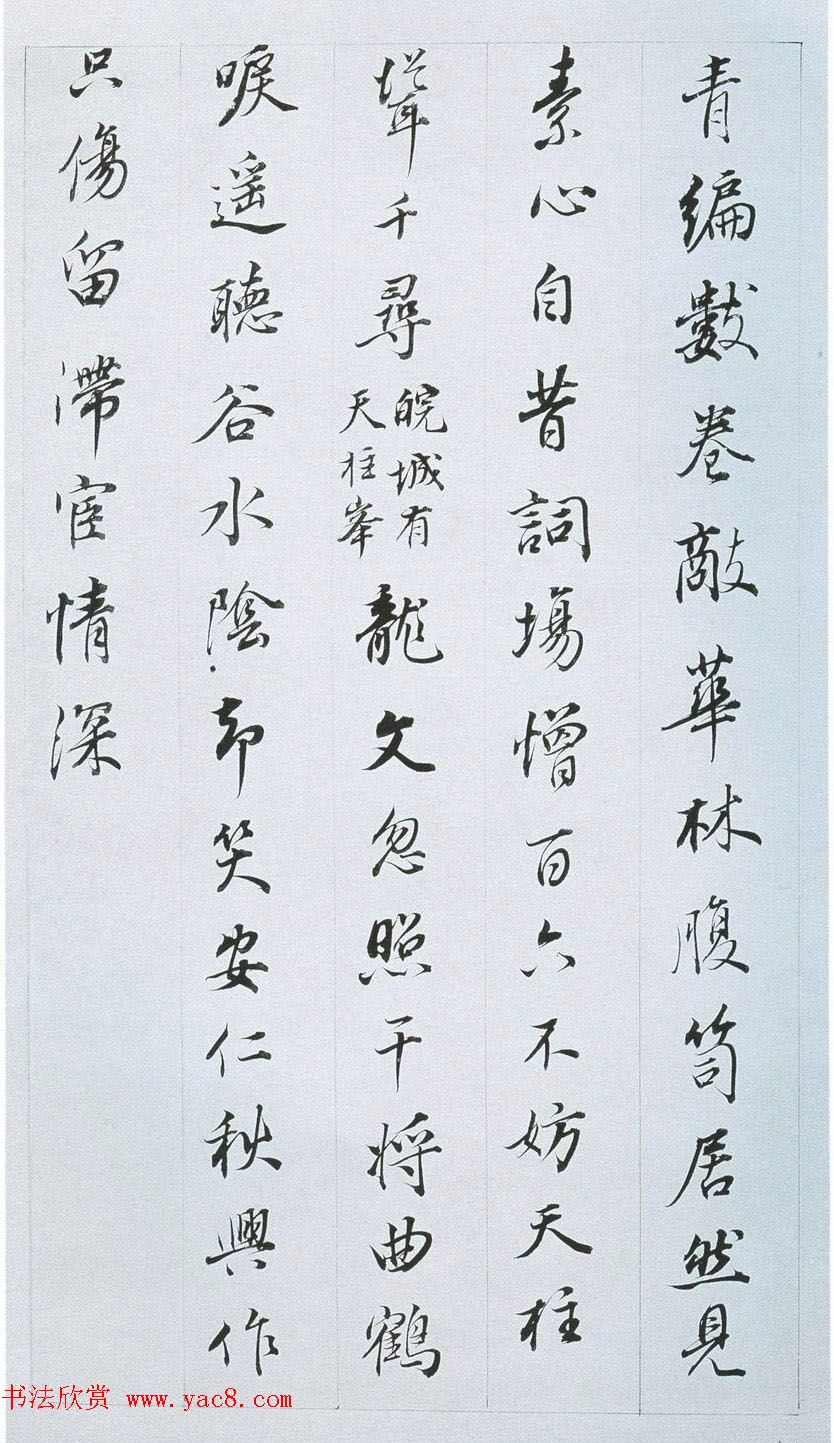 青編數卷敵華林腹笥居然見
素心自昔詞場憎百六不妨天柱
聳千尋皖城有天柱峯龍文忽照干將曲鶴
唳遥聽谷水陰却笑安仁秋興作
只傷留滯宦情深
书法欣赏 www.yac8.com